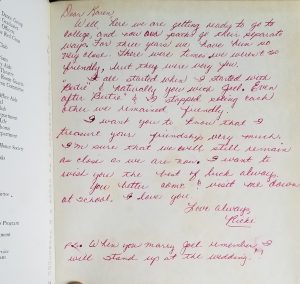 Dear Karen,
Well here we are getting ready to go to
college, and now our paths go their separate
ways. For three years we have been so
very close. There were times we weren't so
friendly, but they were very few.
It all started when I started with
& naturally you with Joel. Even
after & I stopped seeing each
other we remained friendly.
I want you to know that I
treasure your friendship very much.
I'm sure that we will still remain
as close as we are now. I want to
wish you the best of luck always.
You better come & visit me down
at school. I love you
Love always,
P.S. When you marry Joel remember, I
will stand up at the wedding.